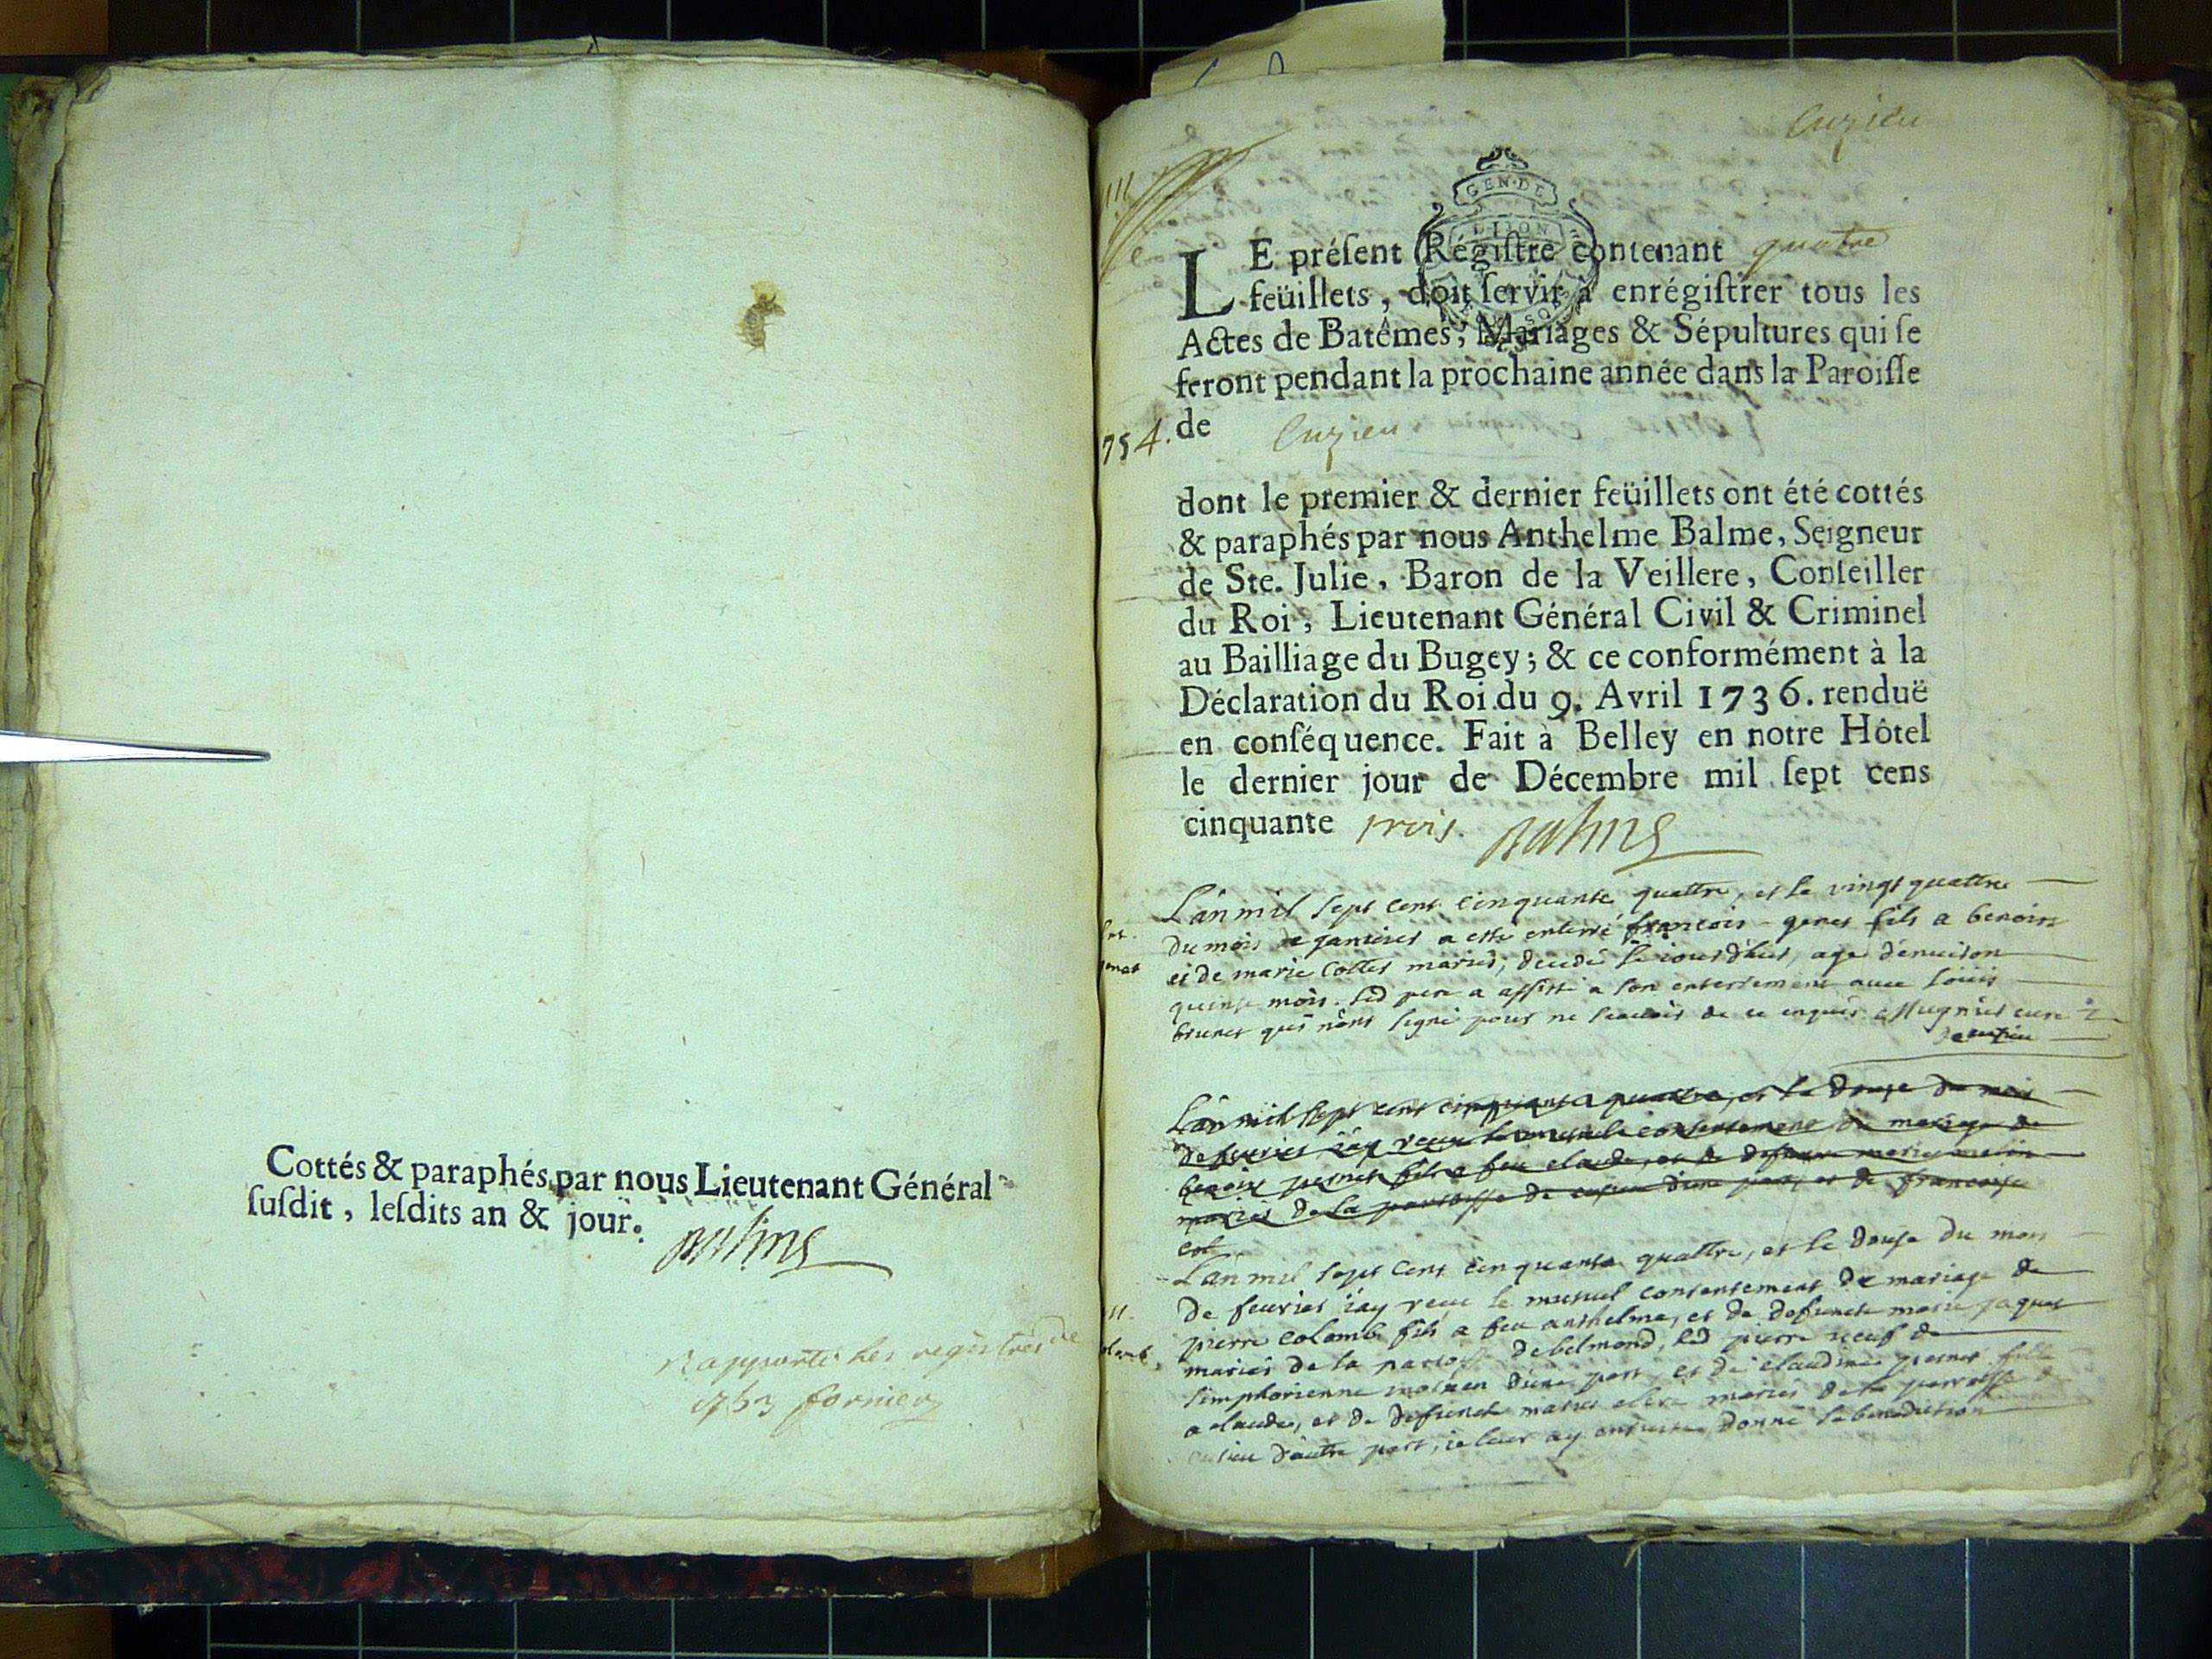 Cottés & paraphés par nous Lieutenant Général
ſuſdit, leſdits an & jour.
Balme
Rapporté les regîstres de
1753 fornier
Cuzieu
GEN·DE
DIJON
LE préſent Régiſtre contenant quatre
feüillets, doit ſervir à enrégiſtrer tous les
Actes de Batêmes, Mariages & Sépultures qui ſe
feront pendant la prochaine année dans la Paroiſſe
754. de Cuzieu
dont le premier & dernier feüillets ont été cottés
& paraphés par nous Anthelme Balme, Seigneur
de Ste. Julie, Baron de la Veillere, Conſeiller
du Roi, Lieutenant Général Civil & Criminel
au Bailliage du Bugey; & ce conformément à la
Déclaration du Roi du 9. Avril 1736. renduë
en conſéquence. Fait à Belley en notre Hôtel
le dernier jour de Décembre mil ſept cens
cinquante trois. Balme
L'an mil sept cent cinquante quattre, et le vingt quattre
du mois de janvier a esté enterré francois genet fils a benoist
et de marie Collet mariés, decedé le jourd'huy, age d'enuiron
quinse mois. led pere a assisté a son enterrement avec Loüis
brunet qui n'ont signé pour ne scavoir de ce enquis Mugnier curé
de cuzieu
L'an mil sept cent cinquante quattre, et le douse du mois
de feurier j'ay receu le mutuel consentement de mariage de
benoist fils a feu claude, et de defunte marie
mariés de la parroisse de cusieu d'une part, et de francoise
col
L'an mil sept cent cinquante quattre, et le douse du mois
11. de feurier j'ay receu le mutuel consentement de mariage de
pierre colomb fils a feu anthelme, et de defuncte marie jaquet
mariés de la parroisse de belmond, led pierre veuf de
simphorienne d'une part, et de claudine fille
a claude, et de defuncte mariés de la parroisse de
cusieu d'autre part, je leur ay ensuitte donné la benediction